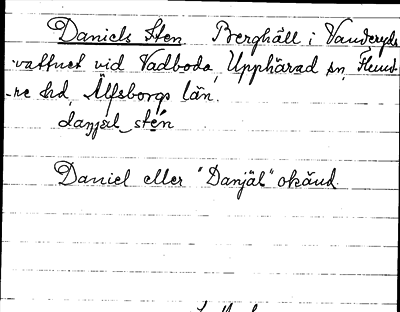 Daniels Sten Berghäll i Vanderyds
-vattnet vid Vadboda, Upphärad sn, Flund
-re hd, Älfsborgs län.
daŋjäl stén
Daniel eller "Danjäl" okänd.